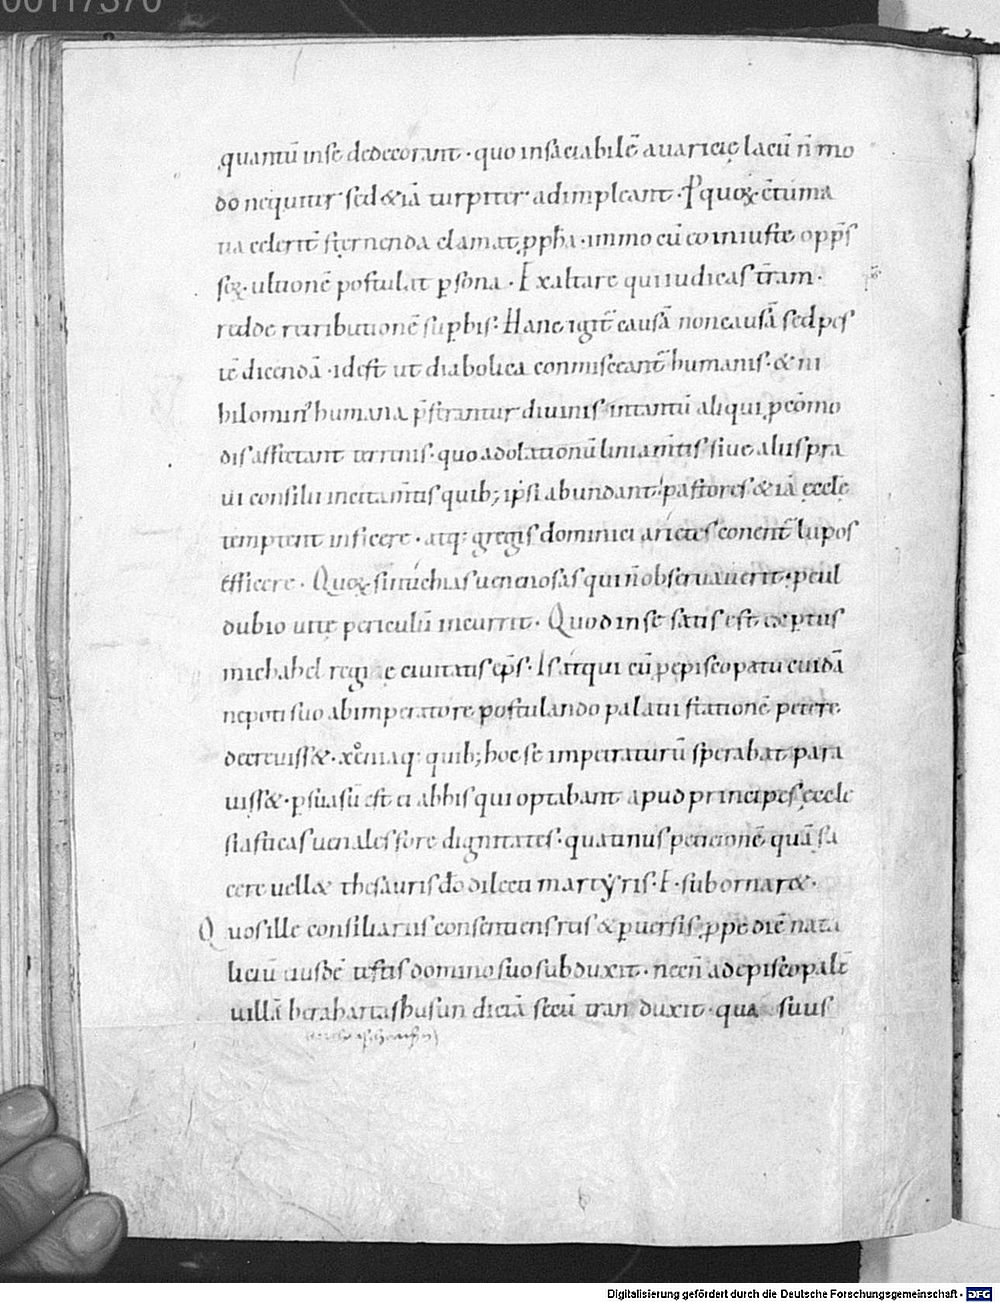 00117370
quantū inse dedecorant · quo insaciabilē auaricię lacū n̄ mo
do nequiter sed &iā turpiter adimpleant · P quoꝝ · ētuma
cia celerit̄ sternenda clamat ꝓph̄a · immo eū iniuste opp̄s
soꝝ · ultionē postulat ꝑsona · Exaltare qui iudicas t̄ram ·
redde retributionē suꝑbis · Hanc igit̄ causā noncausā sed pes
tē dicendā · idest ut diabolica conmisceant̄ humanis · & ni
hilomin' humana p̄ferantur diuinis intantū aliqui ꝓ cōmo
dis affectant terrenis · quo adolationū liniam̄tis siue aliis pra
ui consilii incitam̄tis quib; ipsi abundant pastores &iā ęcclę
temptent inficere · atq; gregis dominici arietes conent̄ lupos
efficere · Quoꝝ sinuchias uenenosas qui n̄ obseruauerit · pcul
dubio uitę periculū incurrit · Quod inse satis est exꝑtus
michahel regi ę ciuitatis ep̄s · Is atqui cū ꝓ episcopatu cuidā
nepoti suo ab imperatore postulando palatii stationē petere
decreuiss& · xeniaq; quib; hoc se impetraturū sperabat para
uiss& · ꝑsuasū est ei abhis qui optabant apud principes ęccle
siasticas uenales fore dignitates · quatinus peticionē quā fa
cere uell& thesauris dō dilecti martyris · E · subornar& ·
Quos ille consiliariis consentiens rtis & ꝑuersis · ꝓpe diē nata
liciū eiusdē testis domino suo subduxit · necn̄ ad episcopalē
uillā herahartashusun dictā secū tran duxit · qua suus
Digitalisierung gefördert durch die Deutsche Forschungsgemeinschaft - DFG